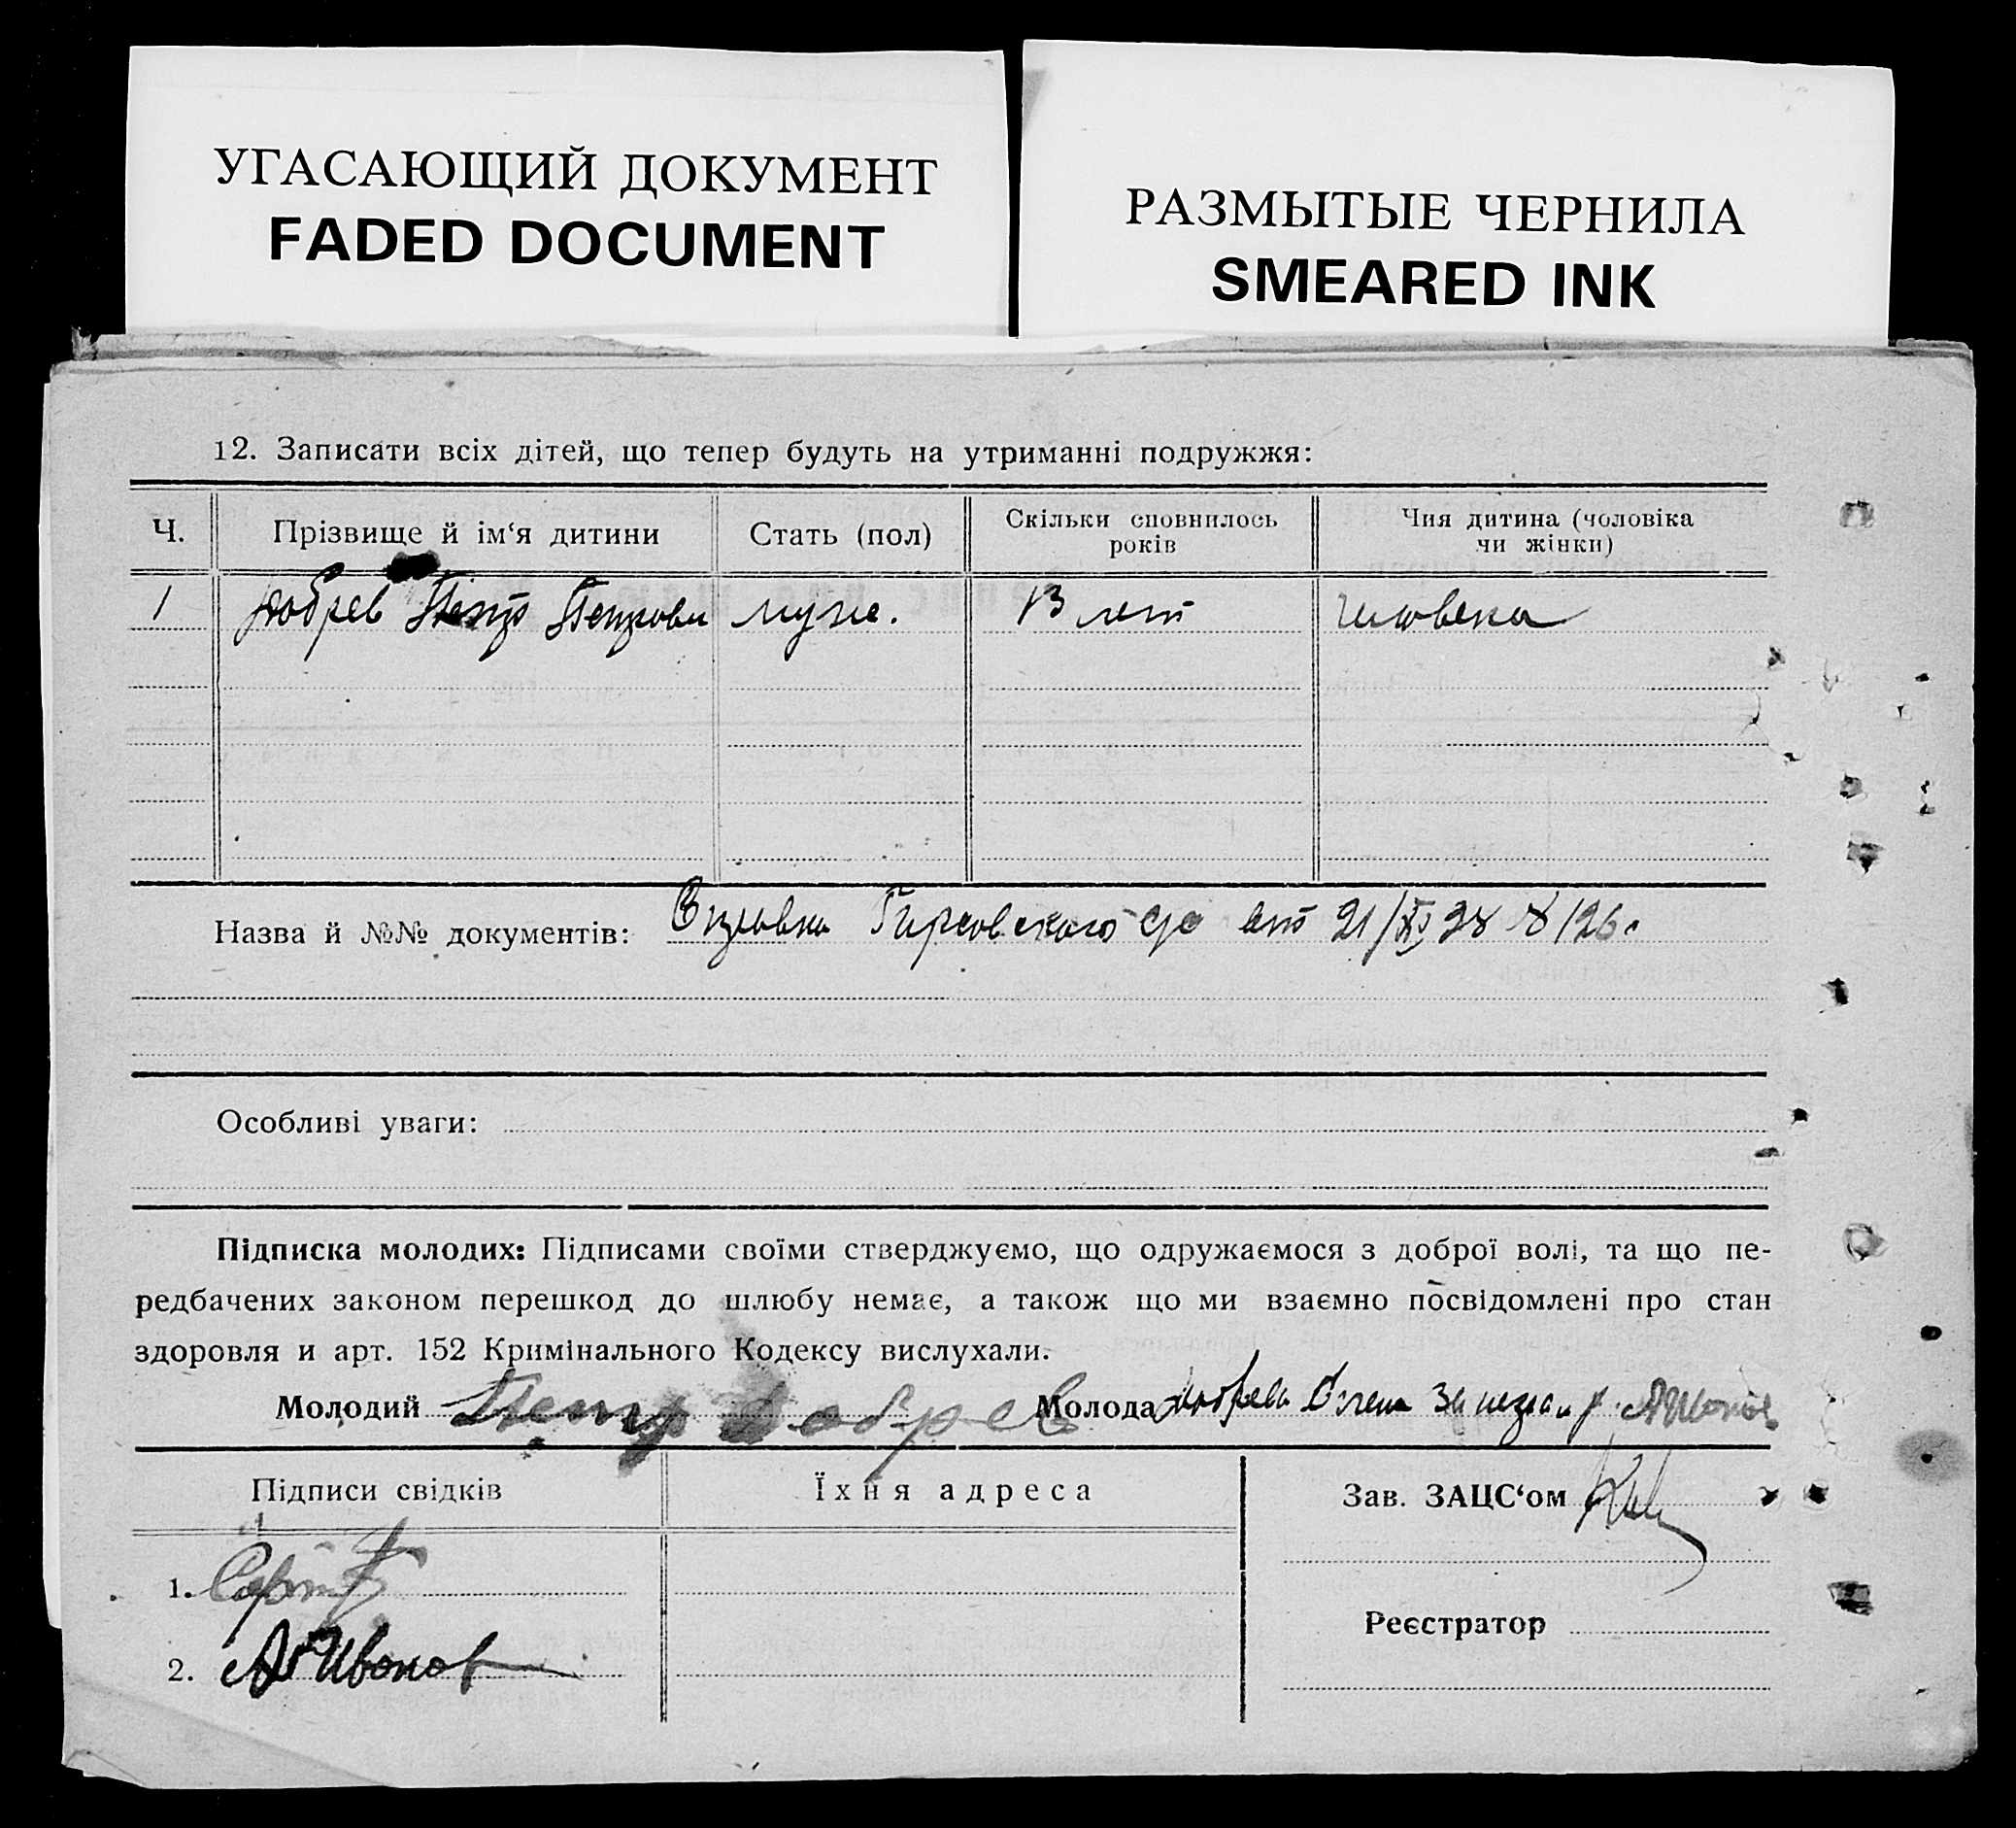 УГАСАЮЩИЙ ДОКУМЕНТ
FADED DOCUMENT
РАЗМЫТЫЕ ЧЕРНИЛА
SMEARED INK
12. Записати всіх дітей, що тепер будуть на утриманні подружжя:
Ч. Прізвище й ім‘я дитини Стать (пол) Скільки сповнилось років Чия дитина (чоловіка чи жінки)
1 Добрев Петр Петрови муж. 13 лет человека
Назва й №№ документів: от 21/XI 28 126.
Особливі уваги:
Підписка молодих: Підписами своїми стверджуємо, що одружаємося з доброї волі, та що пе-
редбачених законом перешкод до шлюбу немає, а також що ми взаємно посвідомлені про стан
здоровля и арт. 152 Кримінального Кодексу вислухали.
Молодий Петр Добрев Молода Добрева Елена За негр. А Ивонов
Підписи свідків Їхня адреса Зав. ЗАЦС‘ом
1.
2. А Ивонов
Реєстратор